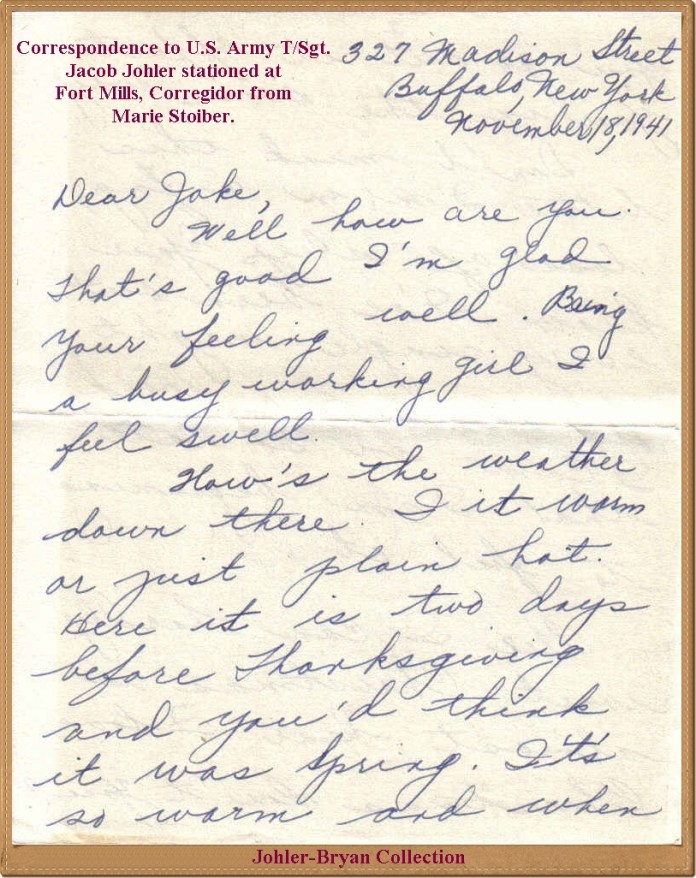 Correspondence to U.S. Army T/Sgt.
Jacob Johler stationed at
Fort Mills, Corregidor from
Marie Stoiber.
327 Madison Street
Buffalo, New York
November 18, 1941
Dear Jake,
Well how are you.
That's good I'm glad
your feeling well. Being
a busy working girl I
feel swell.
How's the weather
down there. I it warm
or just plain hot.
Here it is two days
before Thanksgiving
and you'd think
it was Spring. It's
so warm and when
Johler-Bryan Collection